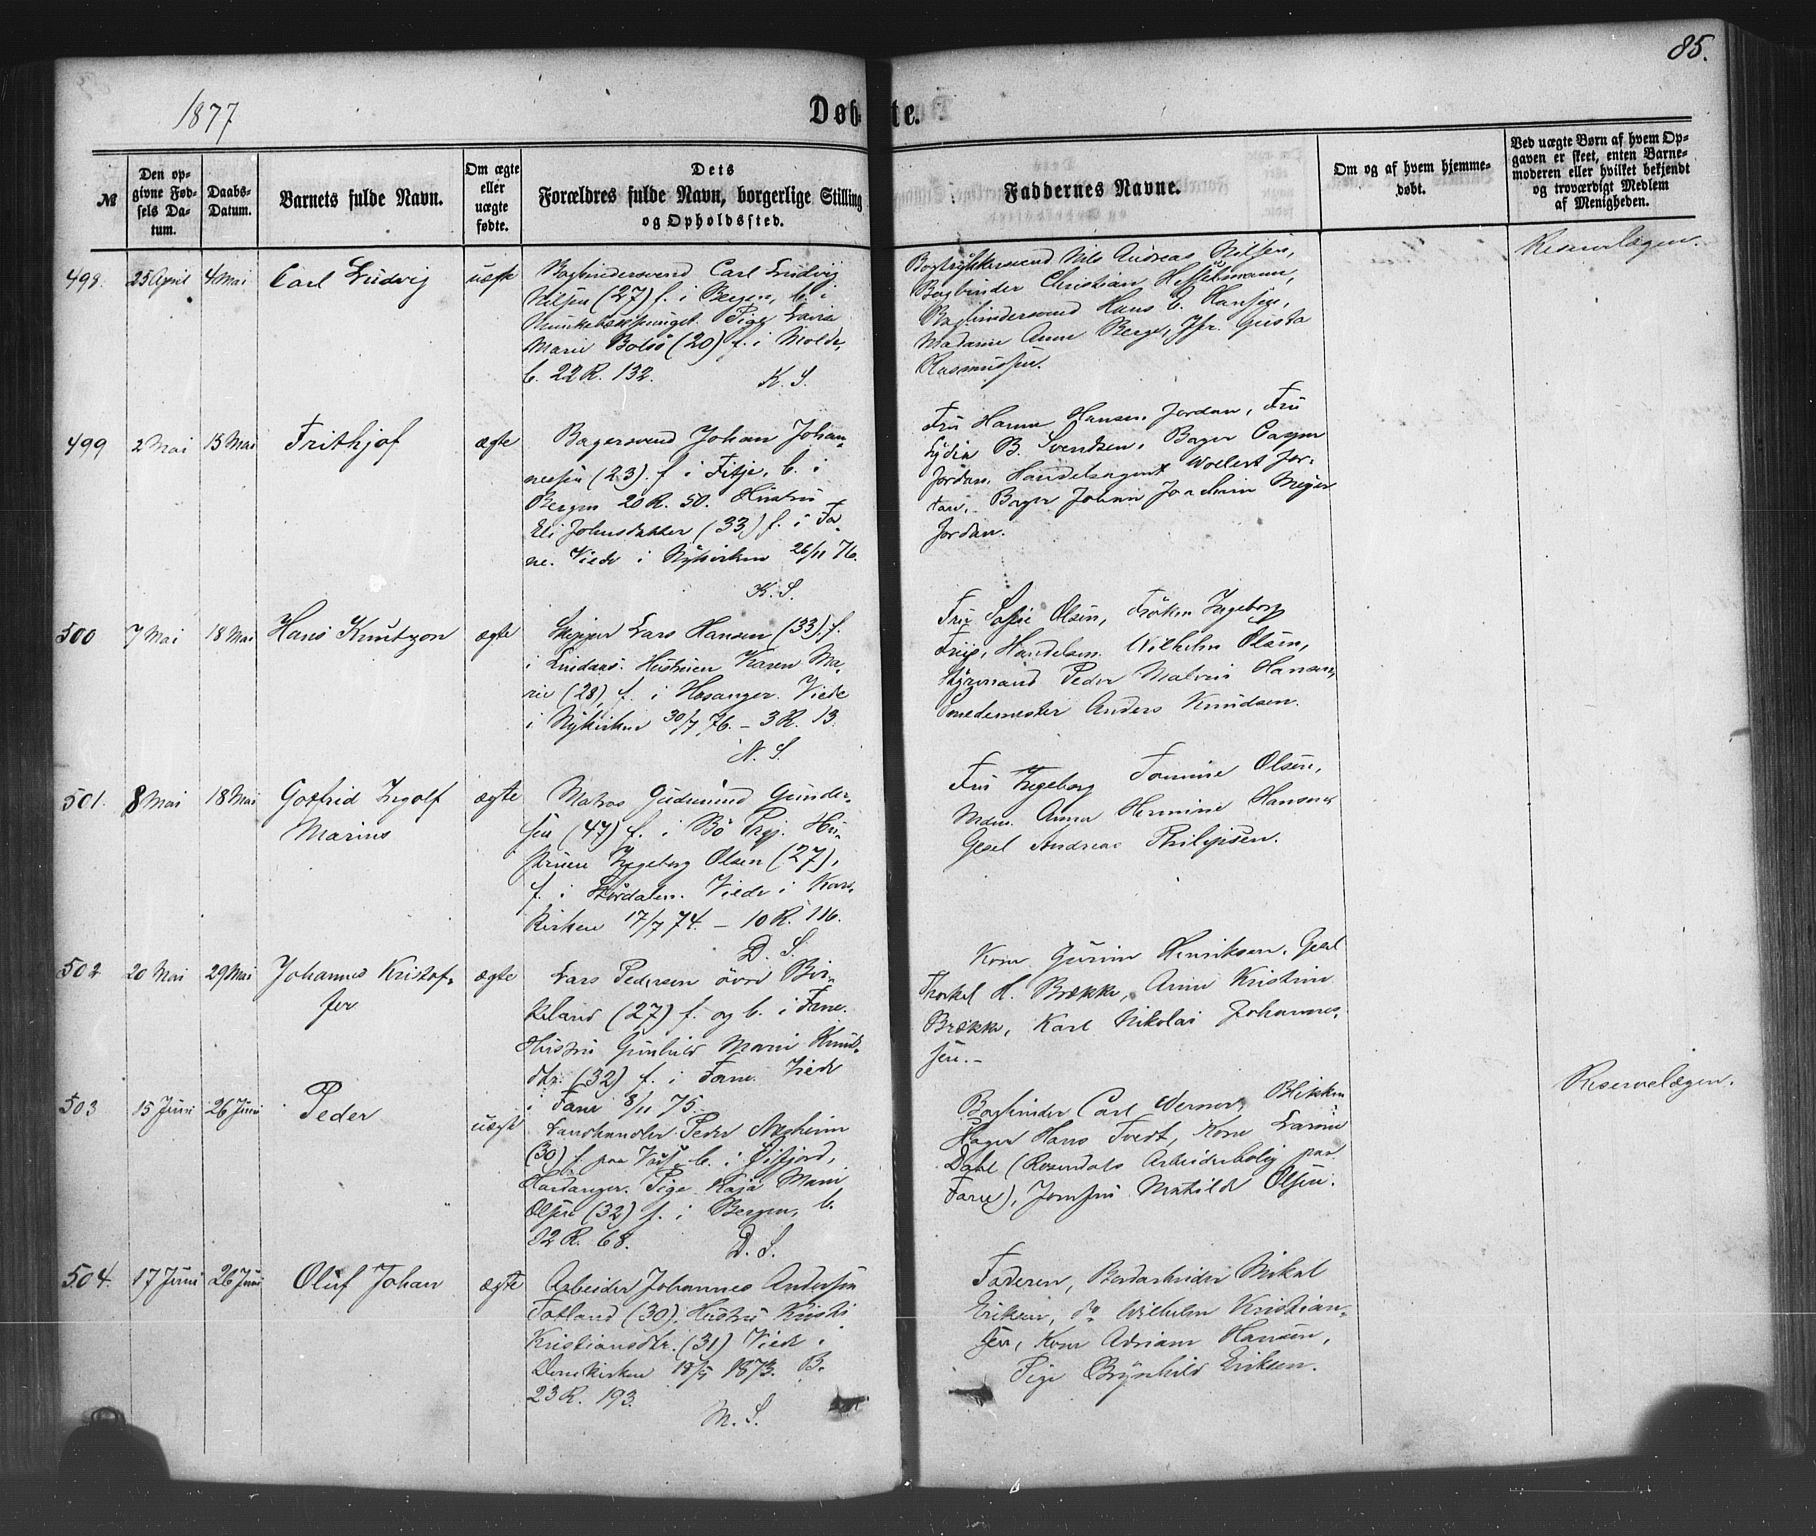 85.
1877
Døbte.
№
Den opgivne Fødsels Datum.
Daabs-Datum.
Barnets fulde Navn.
Om ægte eller uægte fødte.
Dets Forældres fulde Navn, borgerlige Stilling og Opholdssted.
Faddernes Navne.
Om og af hvem hjemmedøbt.
Ved uægte Børn af hvem Opgaven er skeet, enten Barnemoderen eller hvilket bekjendt og troværdigt Medlem af Menigheden.
498. 25 April 4 Mai Carl Ludvig uægte
Bogbindersvend Carl Ludvig
Nilsen (27) f. i Bergen, b. i
Pige Lava
Marie Bolsø (20) f. i Molde,
b. 22 R. 132. K. S.
Bogtrykkersvend Nils Andreas Nilsen,
Bogbinder Christian Hesselmann,
Bogbindersvend Hans C. Hansen,
Madame Anne Berge, Jfr. Gusta
Rasmussen.
Reservelægen.
499 2 Mai 15 Mai Frithjof ægte
Bagersvend Johan Johan-
nessen (23) f. i Fitje, b. i
Bergen 20 R. 50. Hustru
Eli Johnsdatter (33) f. i Fa-
ne. Viede i Nykirken 26/11 76.
K. S.
Fru Hanna Hansen Jordan, Fru
Lydia B. Svendsen, Bager Casper
Jordan, Handelsagent Wollert Jor-
dan, Bager Johan Joachim Meyer
Jordan.
500 7 Mai 18 Mai Hans Knutzon ægte
Skipper Lars Hansen (33) f.
i Lindaas. Hustruen Karen Ma-
rie (28) f. i Hosanger. Viede
i Nykirken 30/7 76. – 3 R. 13.
N. S.
Fru Sofie Olsen, Frøken Ingeborg
Friis, Handelsm. Wilhelm Olsen,
Styrmand Peder Malvin Hansen,
Smedemester Anders Knudsen.
501. 8 Mai 18 Mai Gotfrid Ingolf
Marius ægte
Matros Gudmund Gunder-
sen (47) f. i Bö Prgj. Hu-
struen Ingeborg Olsen (27),
f. i Størdalen. Viede i Kors-
kirken 17/7 74. – 10 R. 116.
D. S.
Fru Ingeborg Tomine Olsen,
Mdm. Anna Hermine Hansen,
Gesel Andreas Philipsen.
502 20 Mai 29 Mai Johannes Kristof-
fer ægte
Lars Pedersen övre Bir-
keland (27) f. og b. i Fane.
Hustru Gunhild Marie Knuds-
dtr. (32) f. i Fane. Viede
i Fane 3/11 75.
Kone Gurine Henriksen, Gesel
Thorkel H. Brække, Anne Kristine
Brække, Karl Nikolai Johannes-
sen. –
503 15 Juni 26 Juni Peder uægte
Landhandler Peder Næsheim
(30) f. paa Vos, b. i Øifjord,
Hardanger. Pige Kaja Marie
Olsen (32) f. i Bergen, b.
12 R. 68. D. S.
Bogbinder Carl Werner, Blikken-
slager Hans Tvedt, Kone Larine
Dahl (Rosendals Arbeiderbolig paa
Fane), Jomfru Matilde Olsen.
Reservelægen.
504. 17 Juni 26 Juni Oluf Johan ægte
Arbeider Johannes Andersen
Totland (30). Hustru Kristi
Kristiansdtr. (31) Viede i
Domkirken 18/5 1873. B.
23 R. 193.
M. S.
Faderen, Bordarbeider Mikal
Eriksen, do Wilhelm Kristian-
sen, Kone Adriane Hansen,
Pige Brynhild Eriksen.